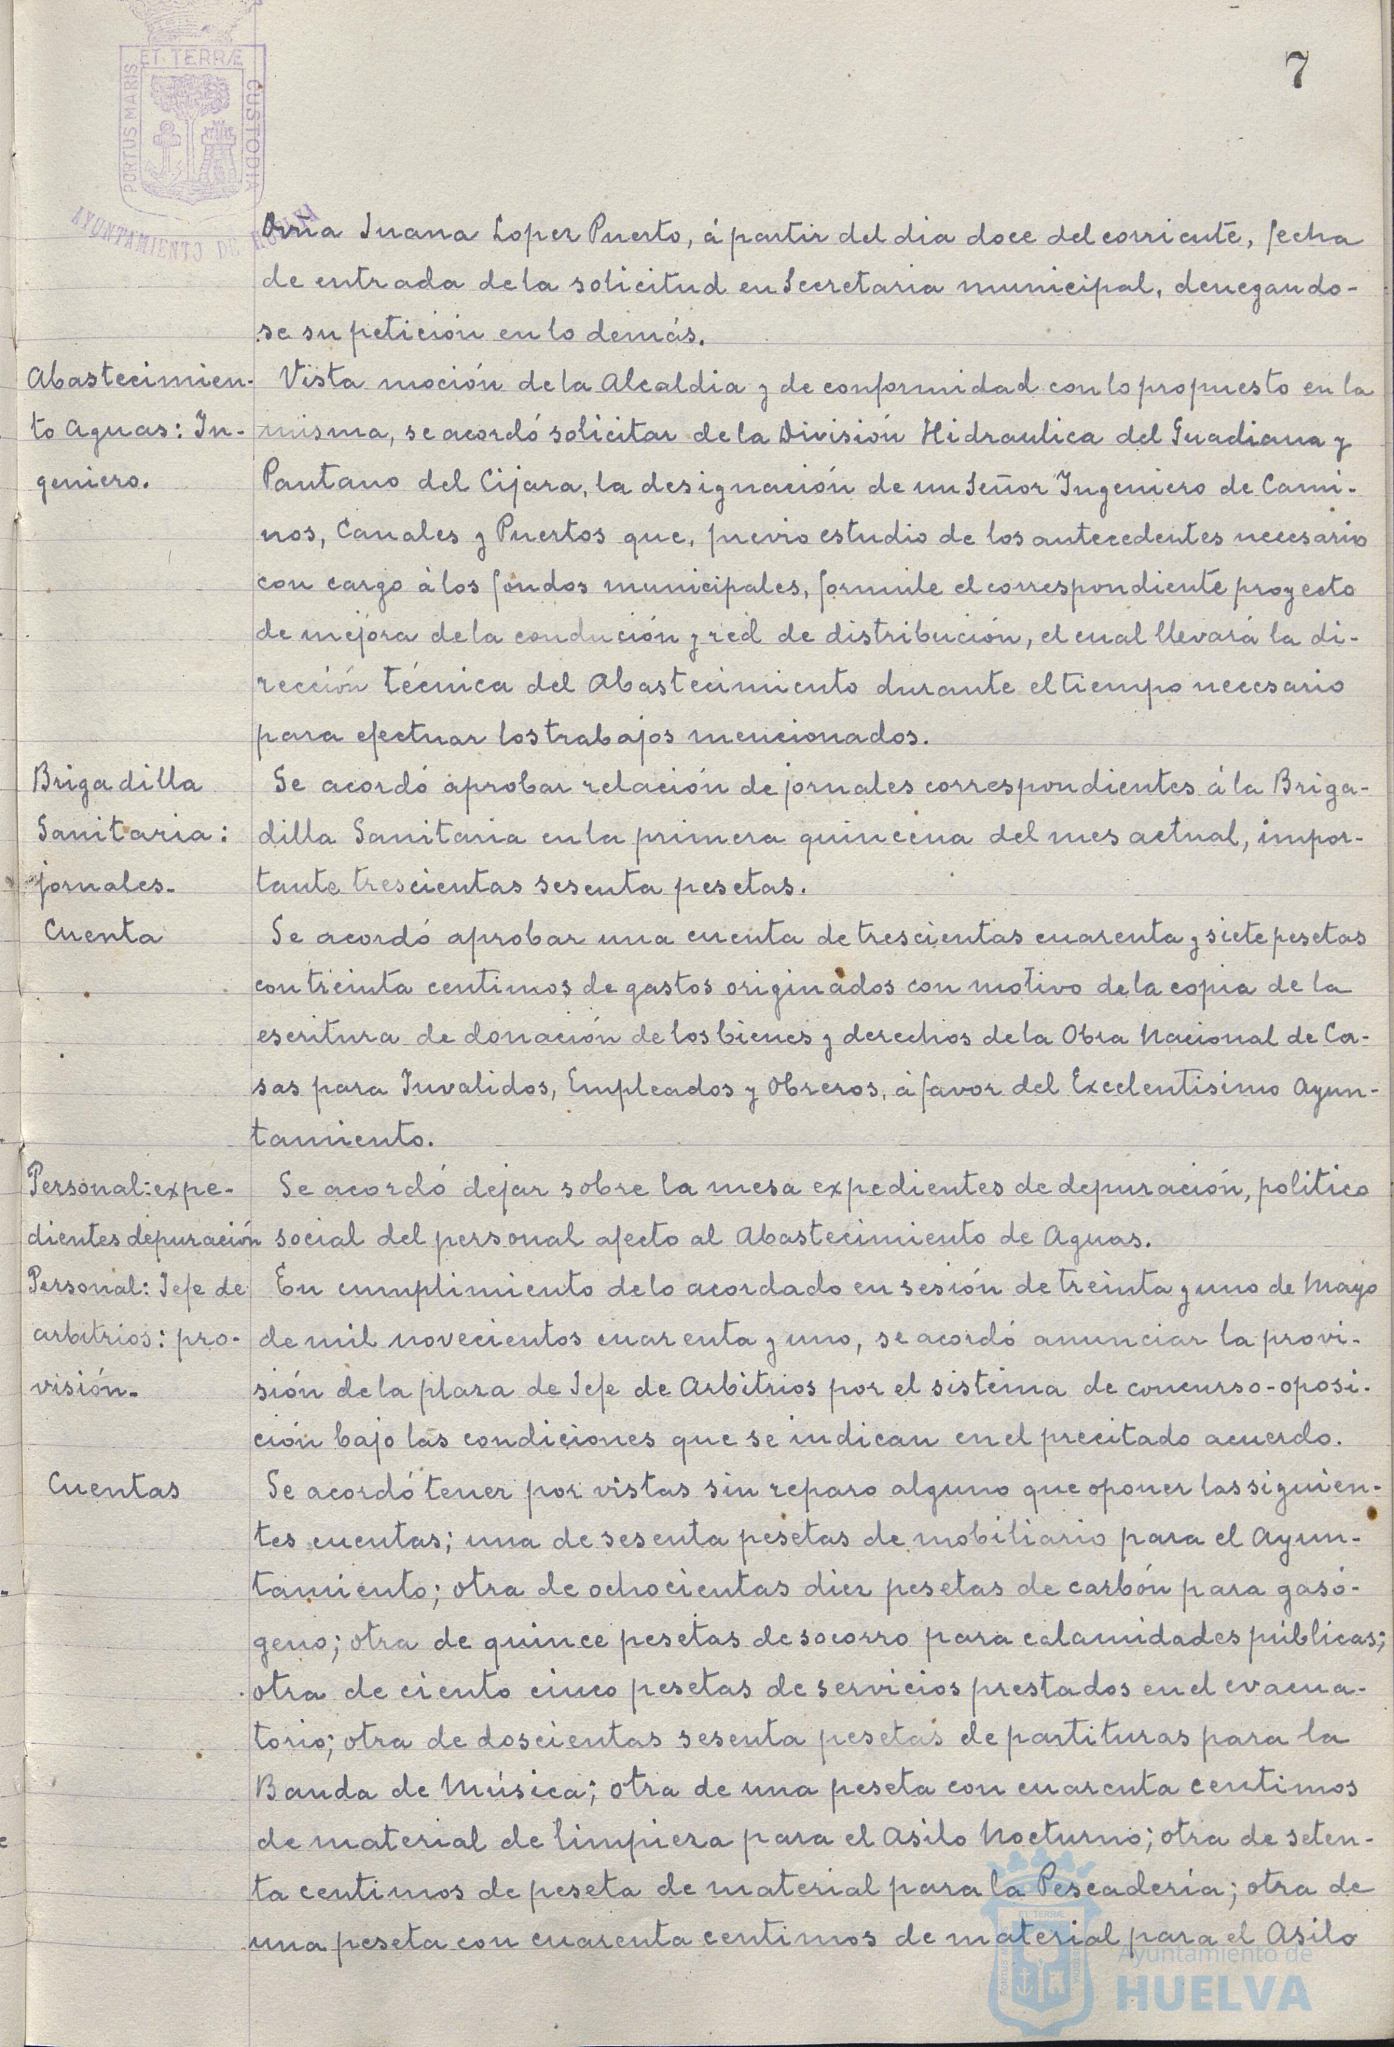 7
PORTUS MARIS ET TERRÆ CUSTODIA
AYUNTAMIENTO DE HUELVA
Dña Juana Lopez Puerto, á partir del dia doce del corriente, fecha
de entrada de la solicitud en Secretaria municipal, denegando-
se su petición en lo demás.
Abastecimien-
to Aguas: In-
geniero.
Vista moción de la Alcaldia y de conformidad con lo propuesto en la
misma, se acordó solicitar de la División Hidraulica del Guadiana y
Pantano del Cijara, la designación de un Señor Ingeniero de Cami-
nos, Canales y Puertos que, previo estudio de los antecedentes necesario
con cargo á los fondos municipales, formule el correspondiente proyecto
de mejora de la condución y red de distribución, el cual llevará la di-
rección técnica del Abastecimiento durante el tiempo necesario
para efectuar los trabajos mencionados.
Brigadilla
Sanitaria:
jornales.
Se acordó aprobar relación de jornales correspondientes á la Briga-
dilla Sanitaria en la primera quincena del mes actual, impor-
tante trescientas sesenta pesetas.
Cuenta
Se acordó aprobar una cuenta de trescientas cuarenta y siete pesetas
con treinta centimos de gastos originados con motivo de la copia de la
escritura de donación de los bienes y derechos de la Obra Nacional de Ca-
sas para Invalidos, Empleados y Obreros, á favor del Excelentisimo Ayun-
tamiento.
Personal: expe-
dientes depuración
Se acordó dejar sobre la mesa expedientes de depuración, politico
social del personal afecto al Abastecimiento de Aguas.
Personal: Jefe de
arbitrios: pro-
visión.
En cumplimiento de lo acordado en sesión de treinta y uno de Mayo
de mil novecientos cuarenta y uno, se acordó anunciar la provi-
sión de la plaza de Jefe de Arbitrios por el sistema de concurso-oposi-
ción bajo las condiciones que se indican en el precitado acuerdo.
Cuentas
Se acordó tener por vistas sin reparo alguno que oponer las siguien-
tes cuentas; una de sesenta pesetas de mobiliario para el Ayun-
tamiento; otra de ochocientas diez pesetas de carbón para gasó-
geno; otra de quince pesetas de socorro para calamidades públicas;
otra de ciento cinco pesetas de servicios prestados en el evacua-
torio; otra de doscientas sesenta pesetas de partituras para la
Banda de Música; otra de una peseta con cuarenta centimos
de material de limpieza para el Asilo Nocturno; otra de seten-
ta centimos de peseta de material para la Pescaderia; otra de
una peseta con cuarenta centimos de material para el Asilo
Ayuntamiento de
HUELVA